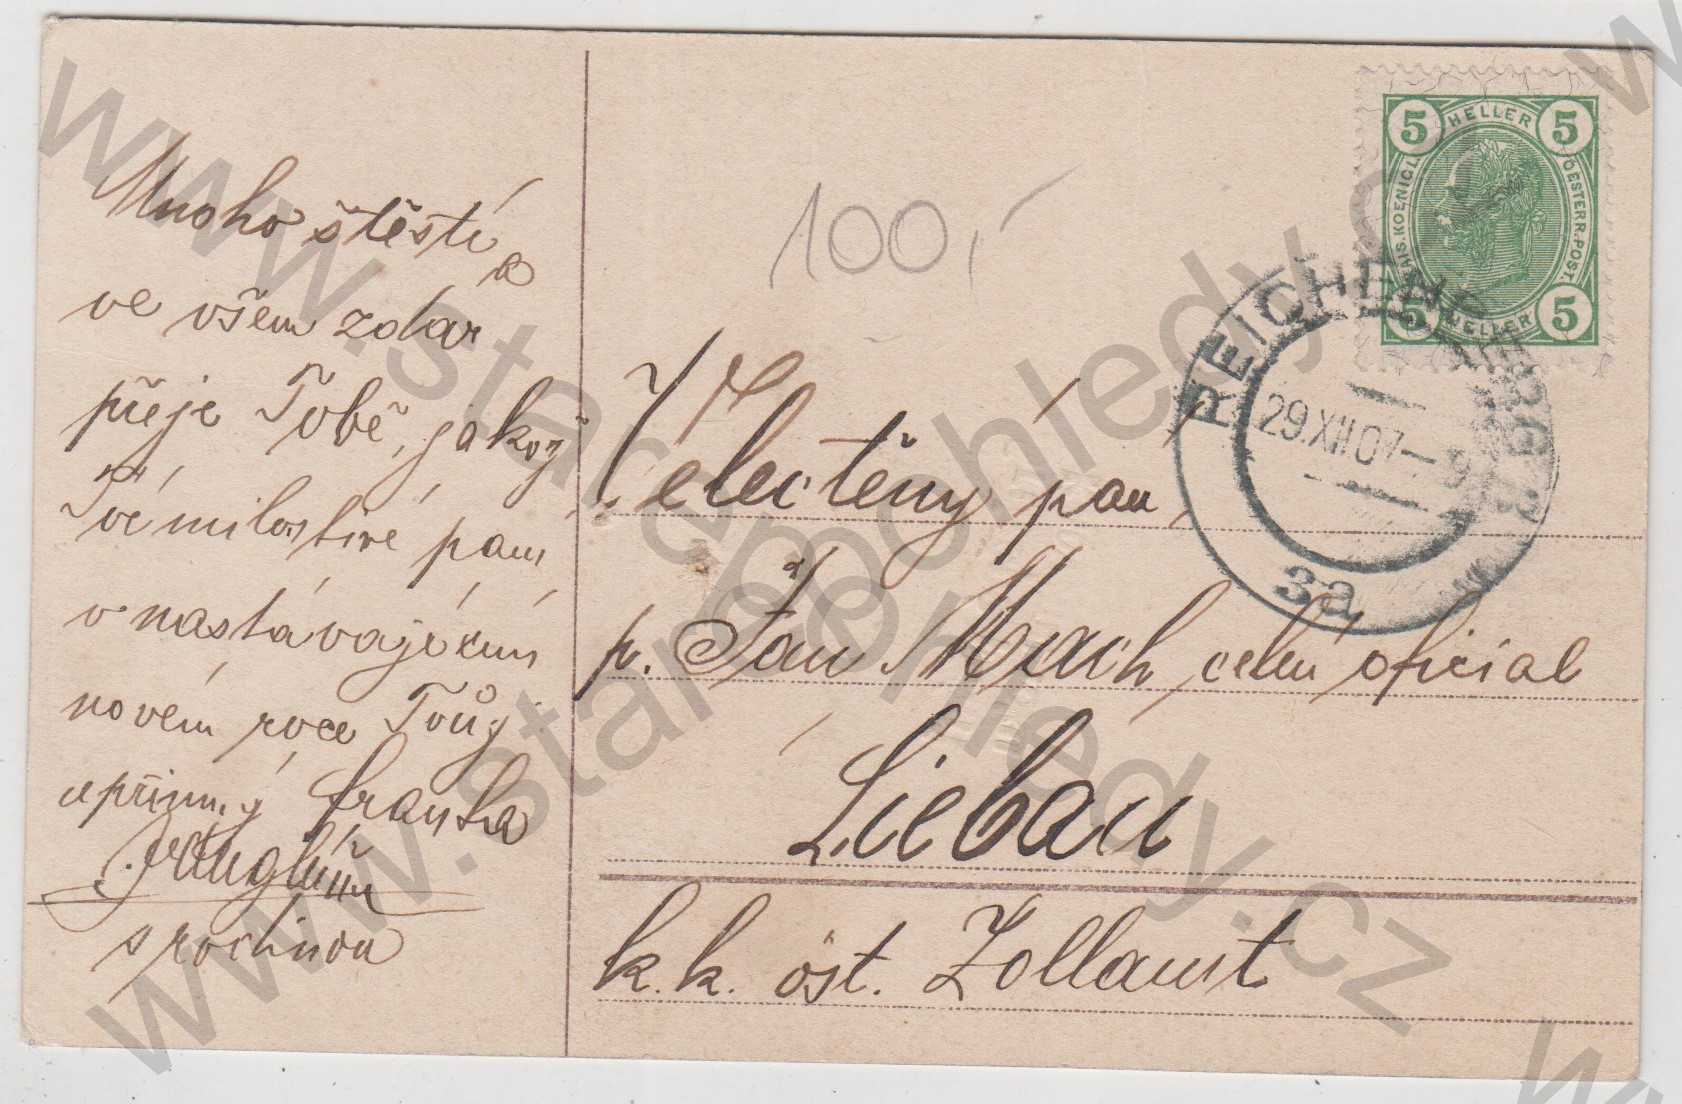 Mnoho štěstí
a
ve všem zdar
přeje Tobě, jakož
Tvé milostivé paní
v nastávajícím
novém roce Tvůj
upřímný Franta
s rodinou
100,-
Velectěný pán,
p. Jan Mach, celní oficial
Liebau
k.k. öst. Zollamt
5 HELLER 5
KAIS. KOENIGL. OESTERR. POST.
5 HELLER 5
REICHENBERG
29.XII.07-9
3a
www.starepohledy.cz
www.starepohledy.cz